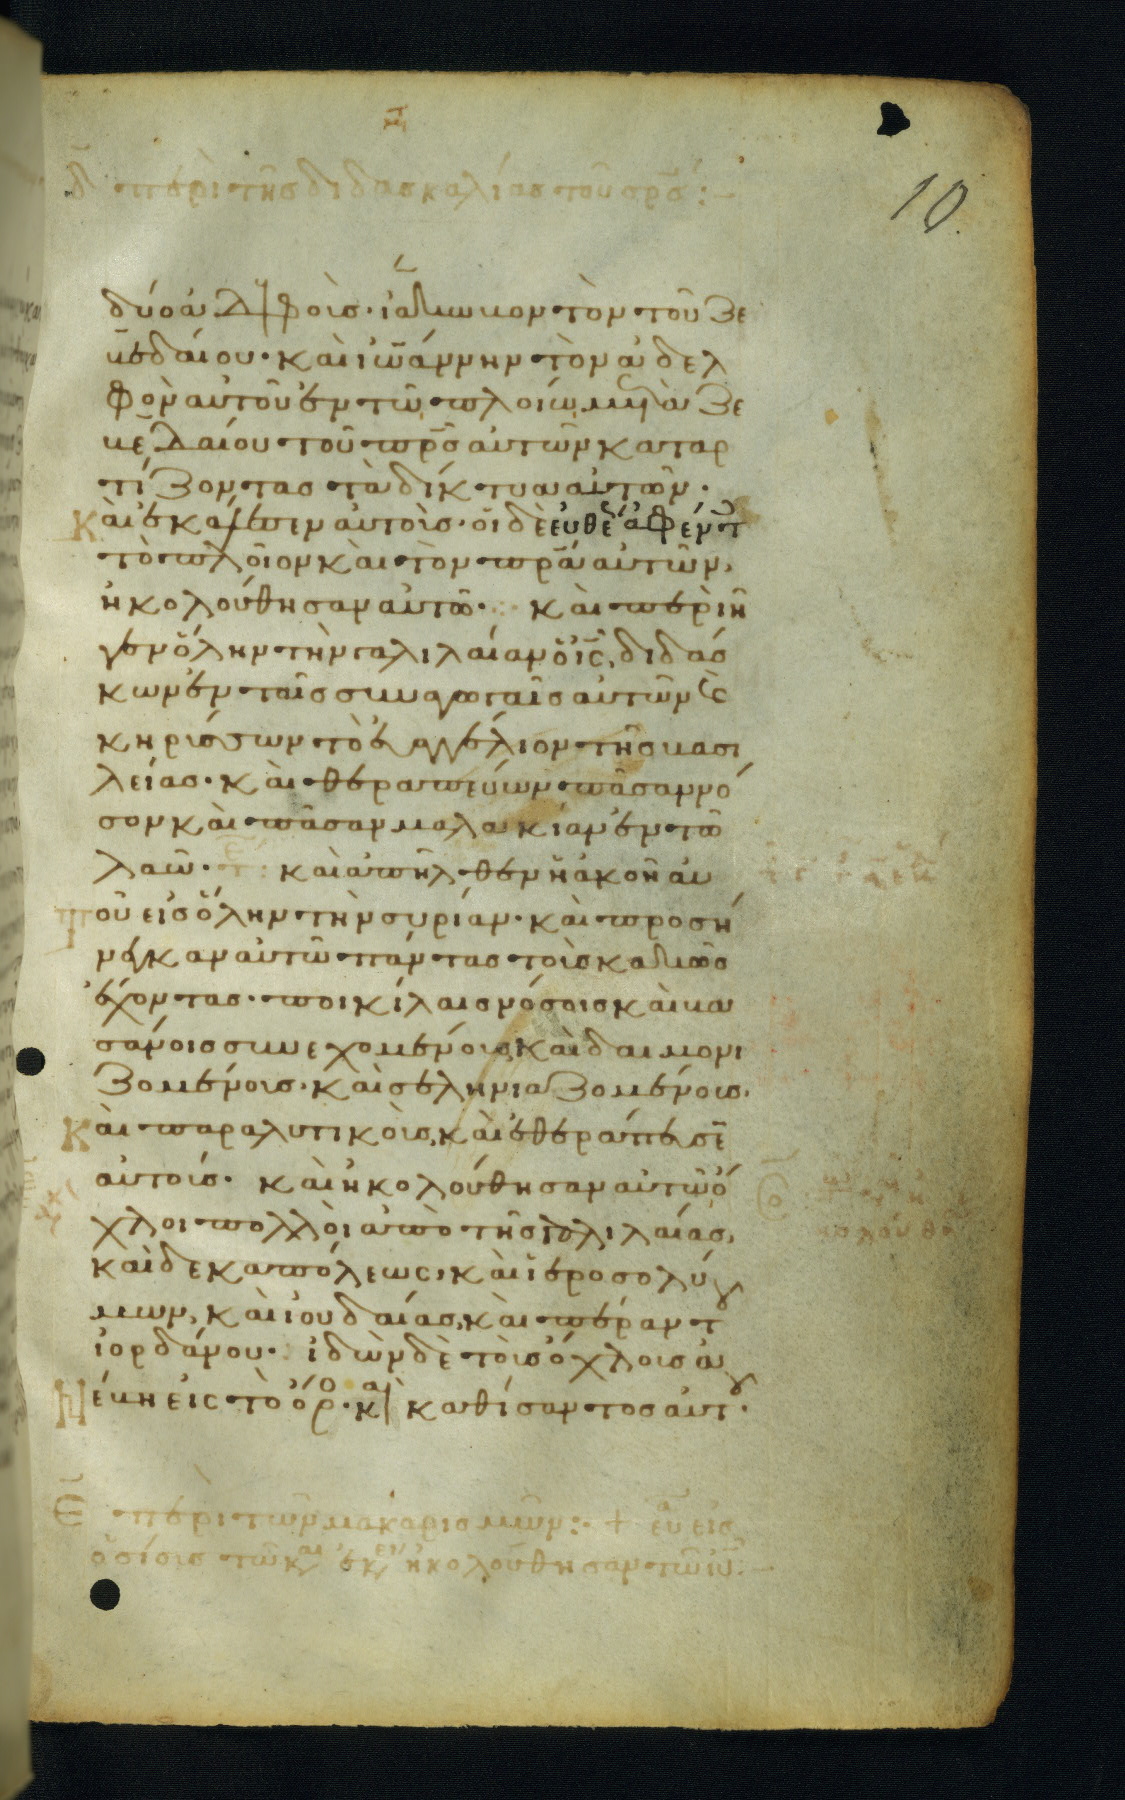 10
δ̄ περὶ τῆς διδασκαλίας τοῦ σρ̅σ :-
δύο ἀδελφοὺς· ἰάκωβον τὸν τοῦ ζε
βεδαίου· καὶ ἰωάννην τὸν ἀδελ
φὸν αὐτοῦ ἐν τῶ πλοίω μετὰ ζε
βεδαίου τοῦ πρ̅ς αὐτῶν καταρ
τίζοντας τὰ δίκτυα αὐτῶν·
Καὶ ἐκάλεσεν αὐτοὺς· οἱ δὲ εὐθέ ἀφέντ
τὸ πλοῖον καὶ τὸν πρ̅α αὐτῶν,
ἠκολούθησαν αὐτῶ· καὶ περιῆ
γεν ὅλην τὴν γαλιλαίαν ὁ ι̅ς, διδάσ
κων ἐν ταῖς συναγωγαῖς αὐτῶν ϗ
κηρύσσων τὸ εὐαγγέλιον τῆς βασι
λείας· καὶ θεραπεύων πᾶσαν νό
σον καὶ πᾶσαν μαλακίαν ἐν τῶ
λαῶ· καὶ ἀπῆλθεν ἡ ἀκοὴ αὐ
τοῦ εἰς ὅλην τὴν συρίαν· καὶ προσή
νεγκαν αὐτῶ πάντας τοὺς κακῶς
ἔχοντας· ποικίλαις νόσοις καὶ βα
σάνοις συνεχομένους, καὶ δαιμονι
ζομένους· καὶ σεληνιαζομένους·
Καὶ παραλυτικοὺς, καὶ ἐθεράπευσε̅
αὐτούς· καὶ ἠκολούθησαν αὐτῶ ὄ
χλοι πολλοὶ ἀπὸ τῆς γαλιλαίας,
καὶ δεκαπόλεως, καὶ ἱεροσολύ
μων, καὶ ἰουδαίας, καὶ πέραν τ
ἰορδάνου· ἰδὼν δὲ τοὺς ὄχλους ἀ
νέβη εἰς τὸ ὄρο· καὶ καθίσαντος αὐτ·
ε̄ περὶ τῶν μακαρισμῶν :· +
ἠκολούθησαν τῶ ιυ̅ :-